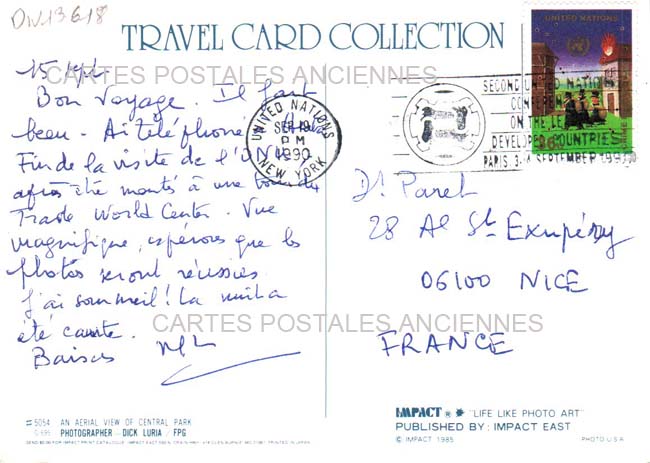 DIV13618
TRAVEL CARD COLLECTION
CARTES POSTALES ANCIENNES
15 sept.
Bon voyage. Il fait
beau. Ai téléphoné
Fin de la visite de l'UN
après été montés à une
Trade World Center. Vue
magnifique, espérons que les
photos seront réussies
J'ai sommeil! La nuit a
été courte.
Baisers
UNITED NATIONS
SEP 19
PM
1990
NEW YORK
SECOND UN NATIONS
CONFEREN
ON THE LE
DEVELOPE COUNTRIES
PARIS 3- SEPTEMBER 1990
UNITED NATIONS
Dr Paret
28 Al St Exupéry
06100 NICE
FRANCE
CARTES POSTALES ANCIENNES
5054 AN AERIAL VIEW OF CENTRAL PARK
PHOTOGRAPHER - DICK LURIA / FPG
IMPACT "LIFE LIKE PHOTO ART"
PUBLISHED BY: IMPACT EAST
© IMPACT 1985
PHOTO U.S.A.